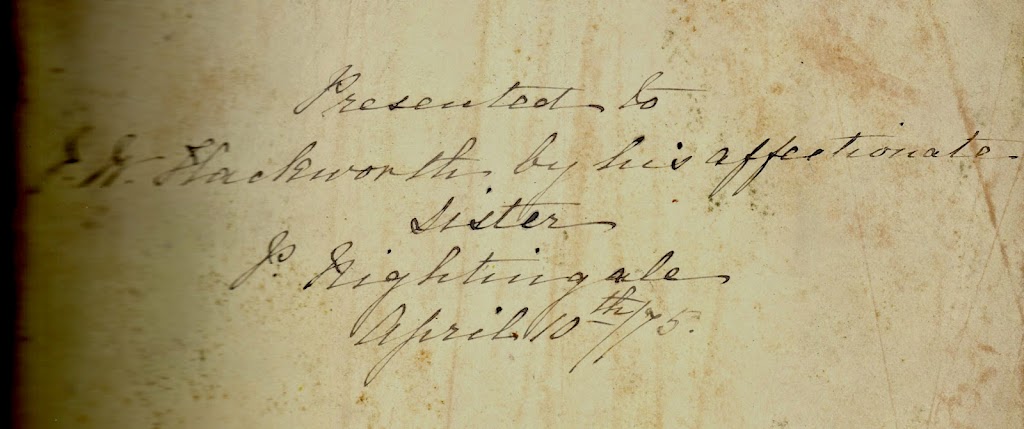 Presented to
J. W. Hackworth by his affectionate
Sister
P. Nightingale
April 10th/75.